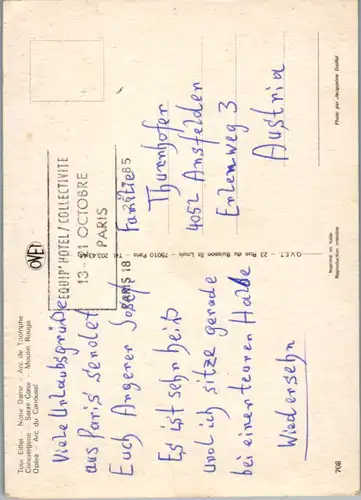 Tour Eiffel - Notre Dame - Arc de Triomphe
Conciergerie - Sacré Cœur - Moulin Rouge
Opéra - Arc du Carrousel
Viele Urlaubsgrüße
aus Paris sendet
Euch Angerer Josef
Es ist sehr heiß
und ich sitze gerade
bei einer teuren Halbe
Wiedersehn
OVET
EQUIP'HOTEL/COLLECTIVITE
13 - 21 OCTOBRE
PARIS
PARIS 18
85
O.V.E.T. - 23 Rue du Buisson St Louis - 75010 Paris - Tél.
Familie
Thurnhofer
4052 Ansfelden
Erlenweg 3
Austria
Photo par Jacqueline Guillot
Imprimé en Italie
Reproduction interdite
708